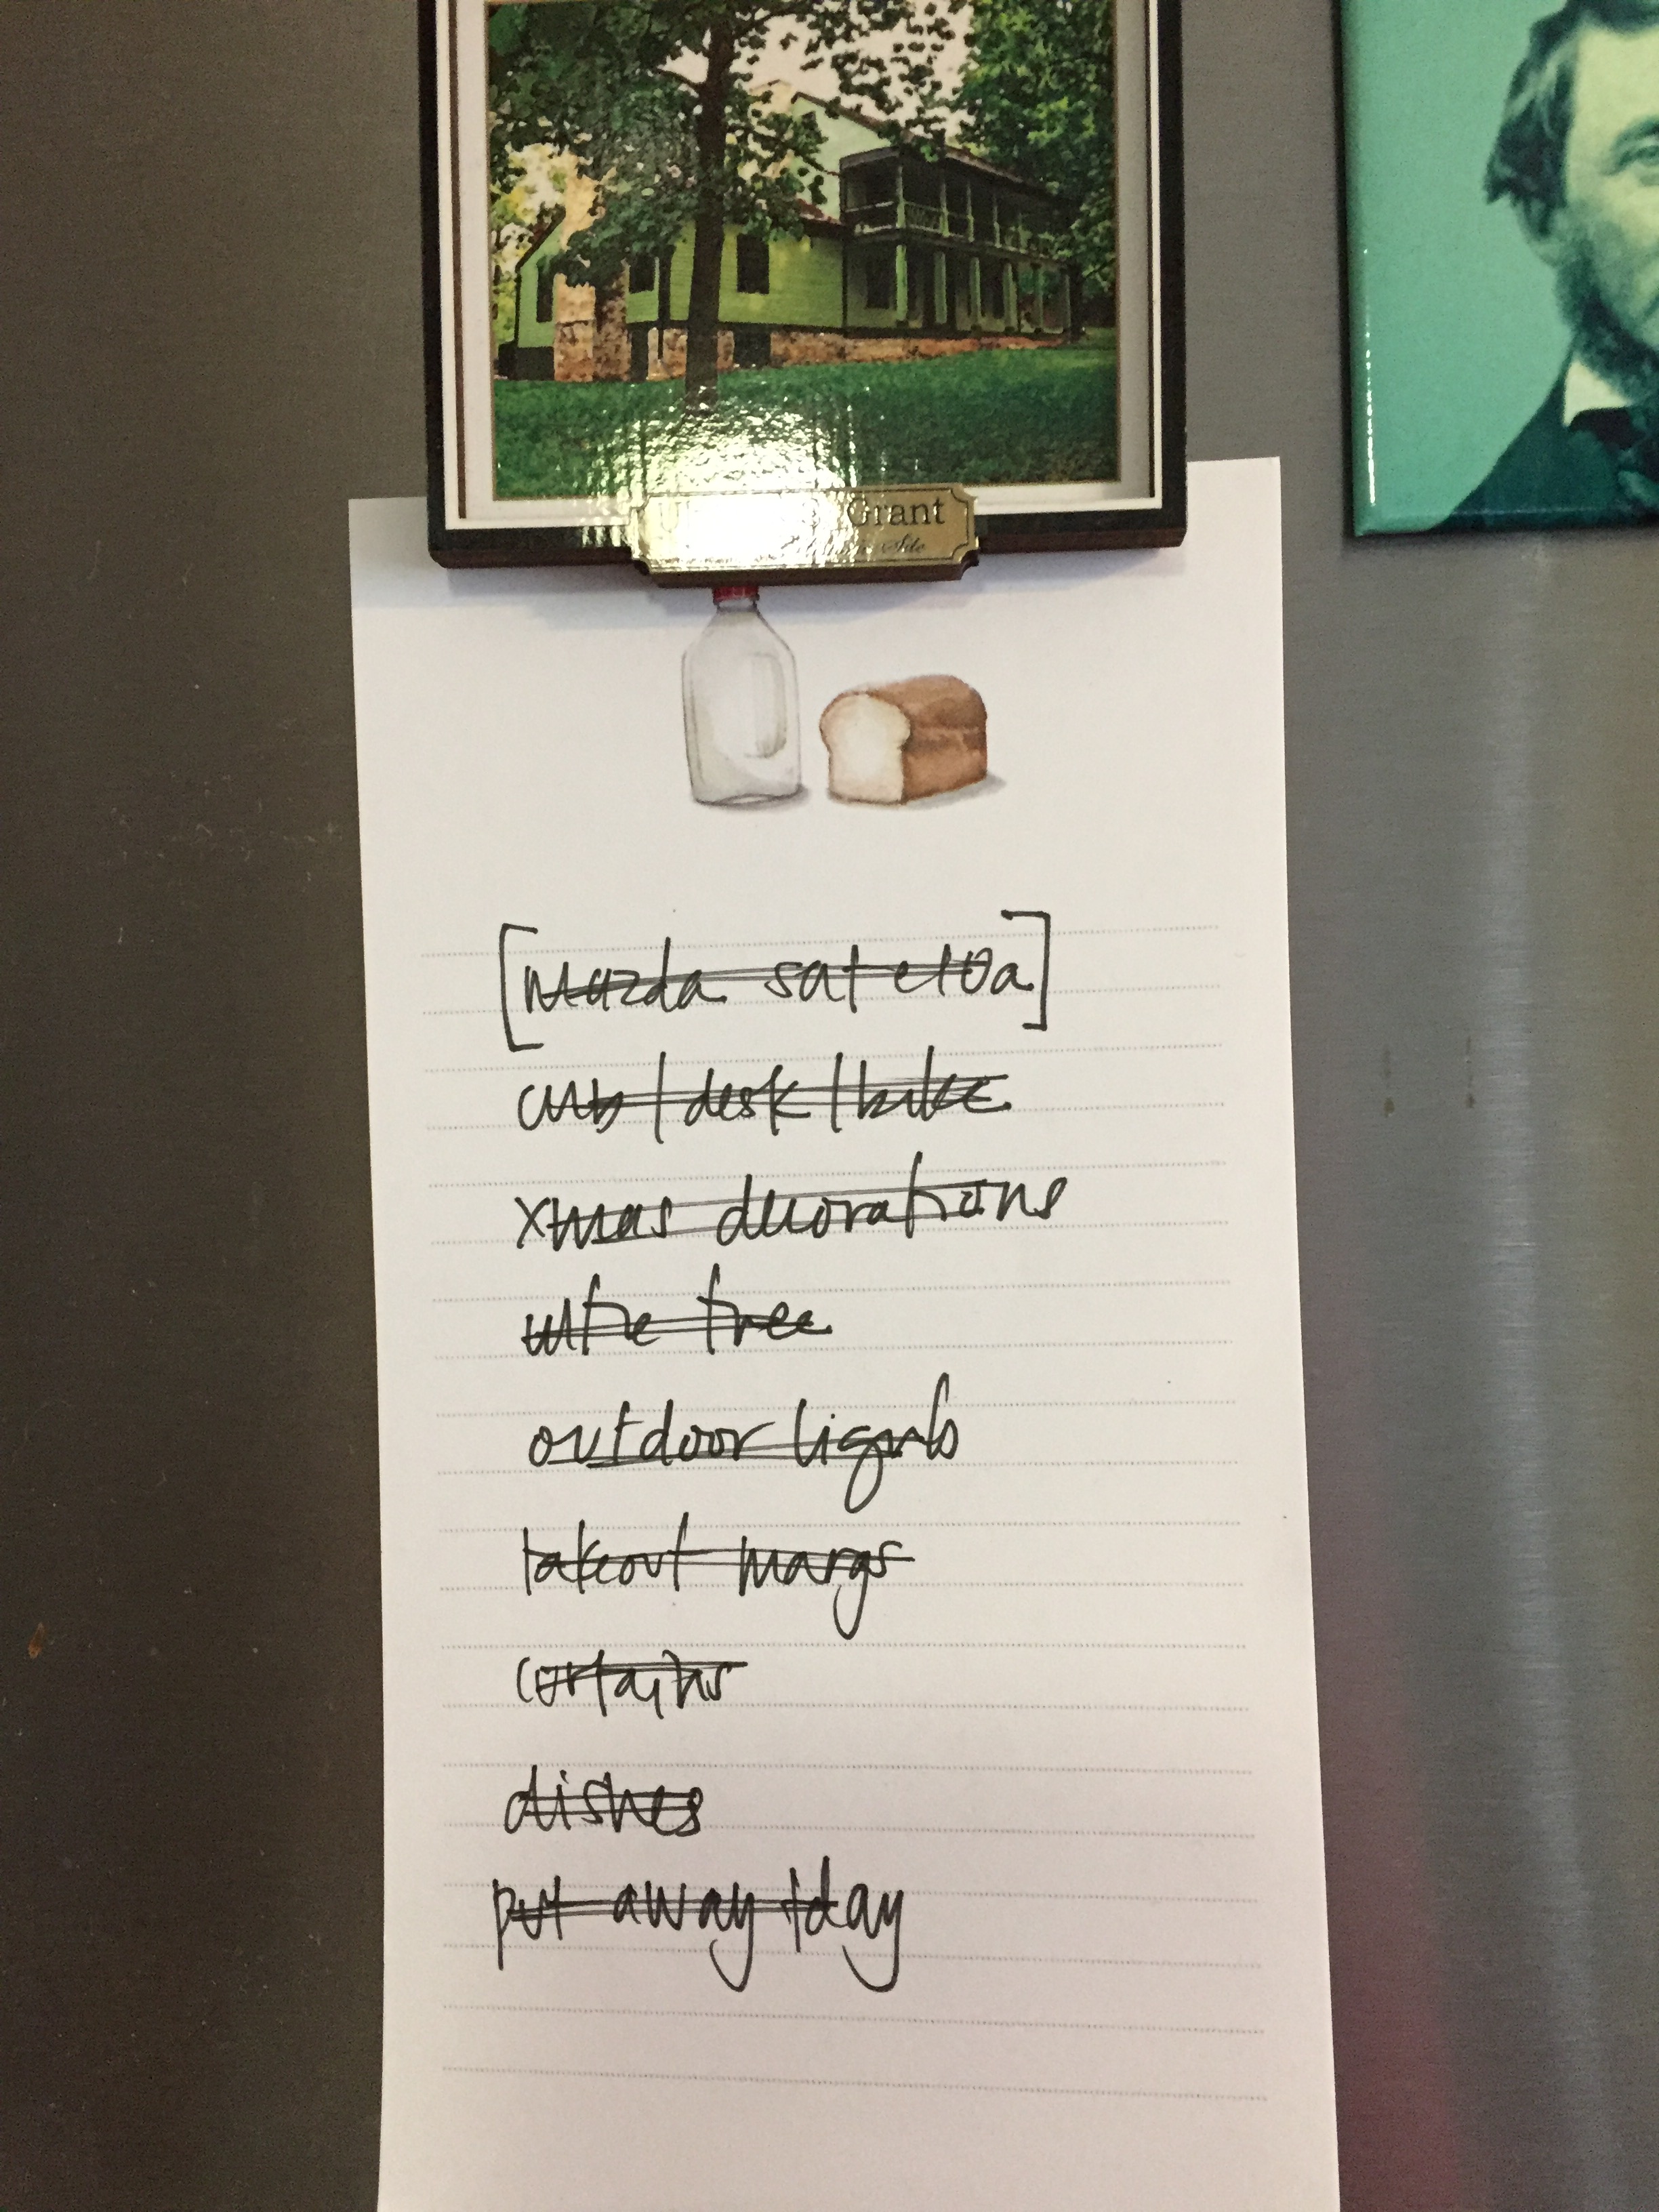 Grant
Site
[mazda sat @ 10a]
crib / desk / bike
xmas decorations
white tree
outdoor lights
takeout margs
curtains
dishes
put away tday